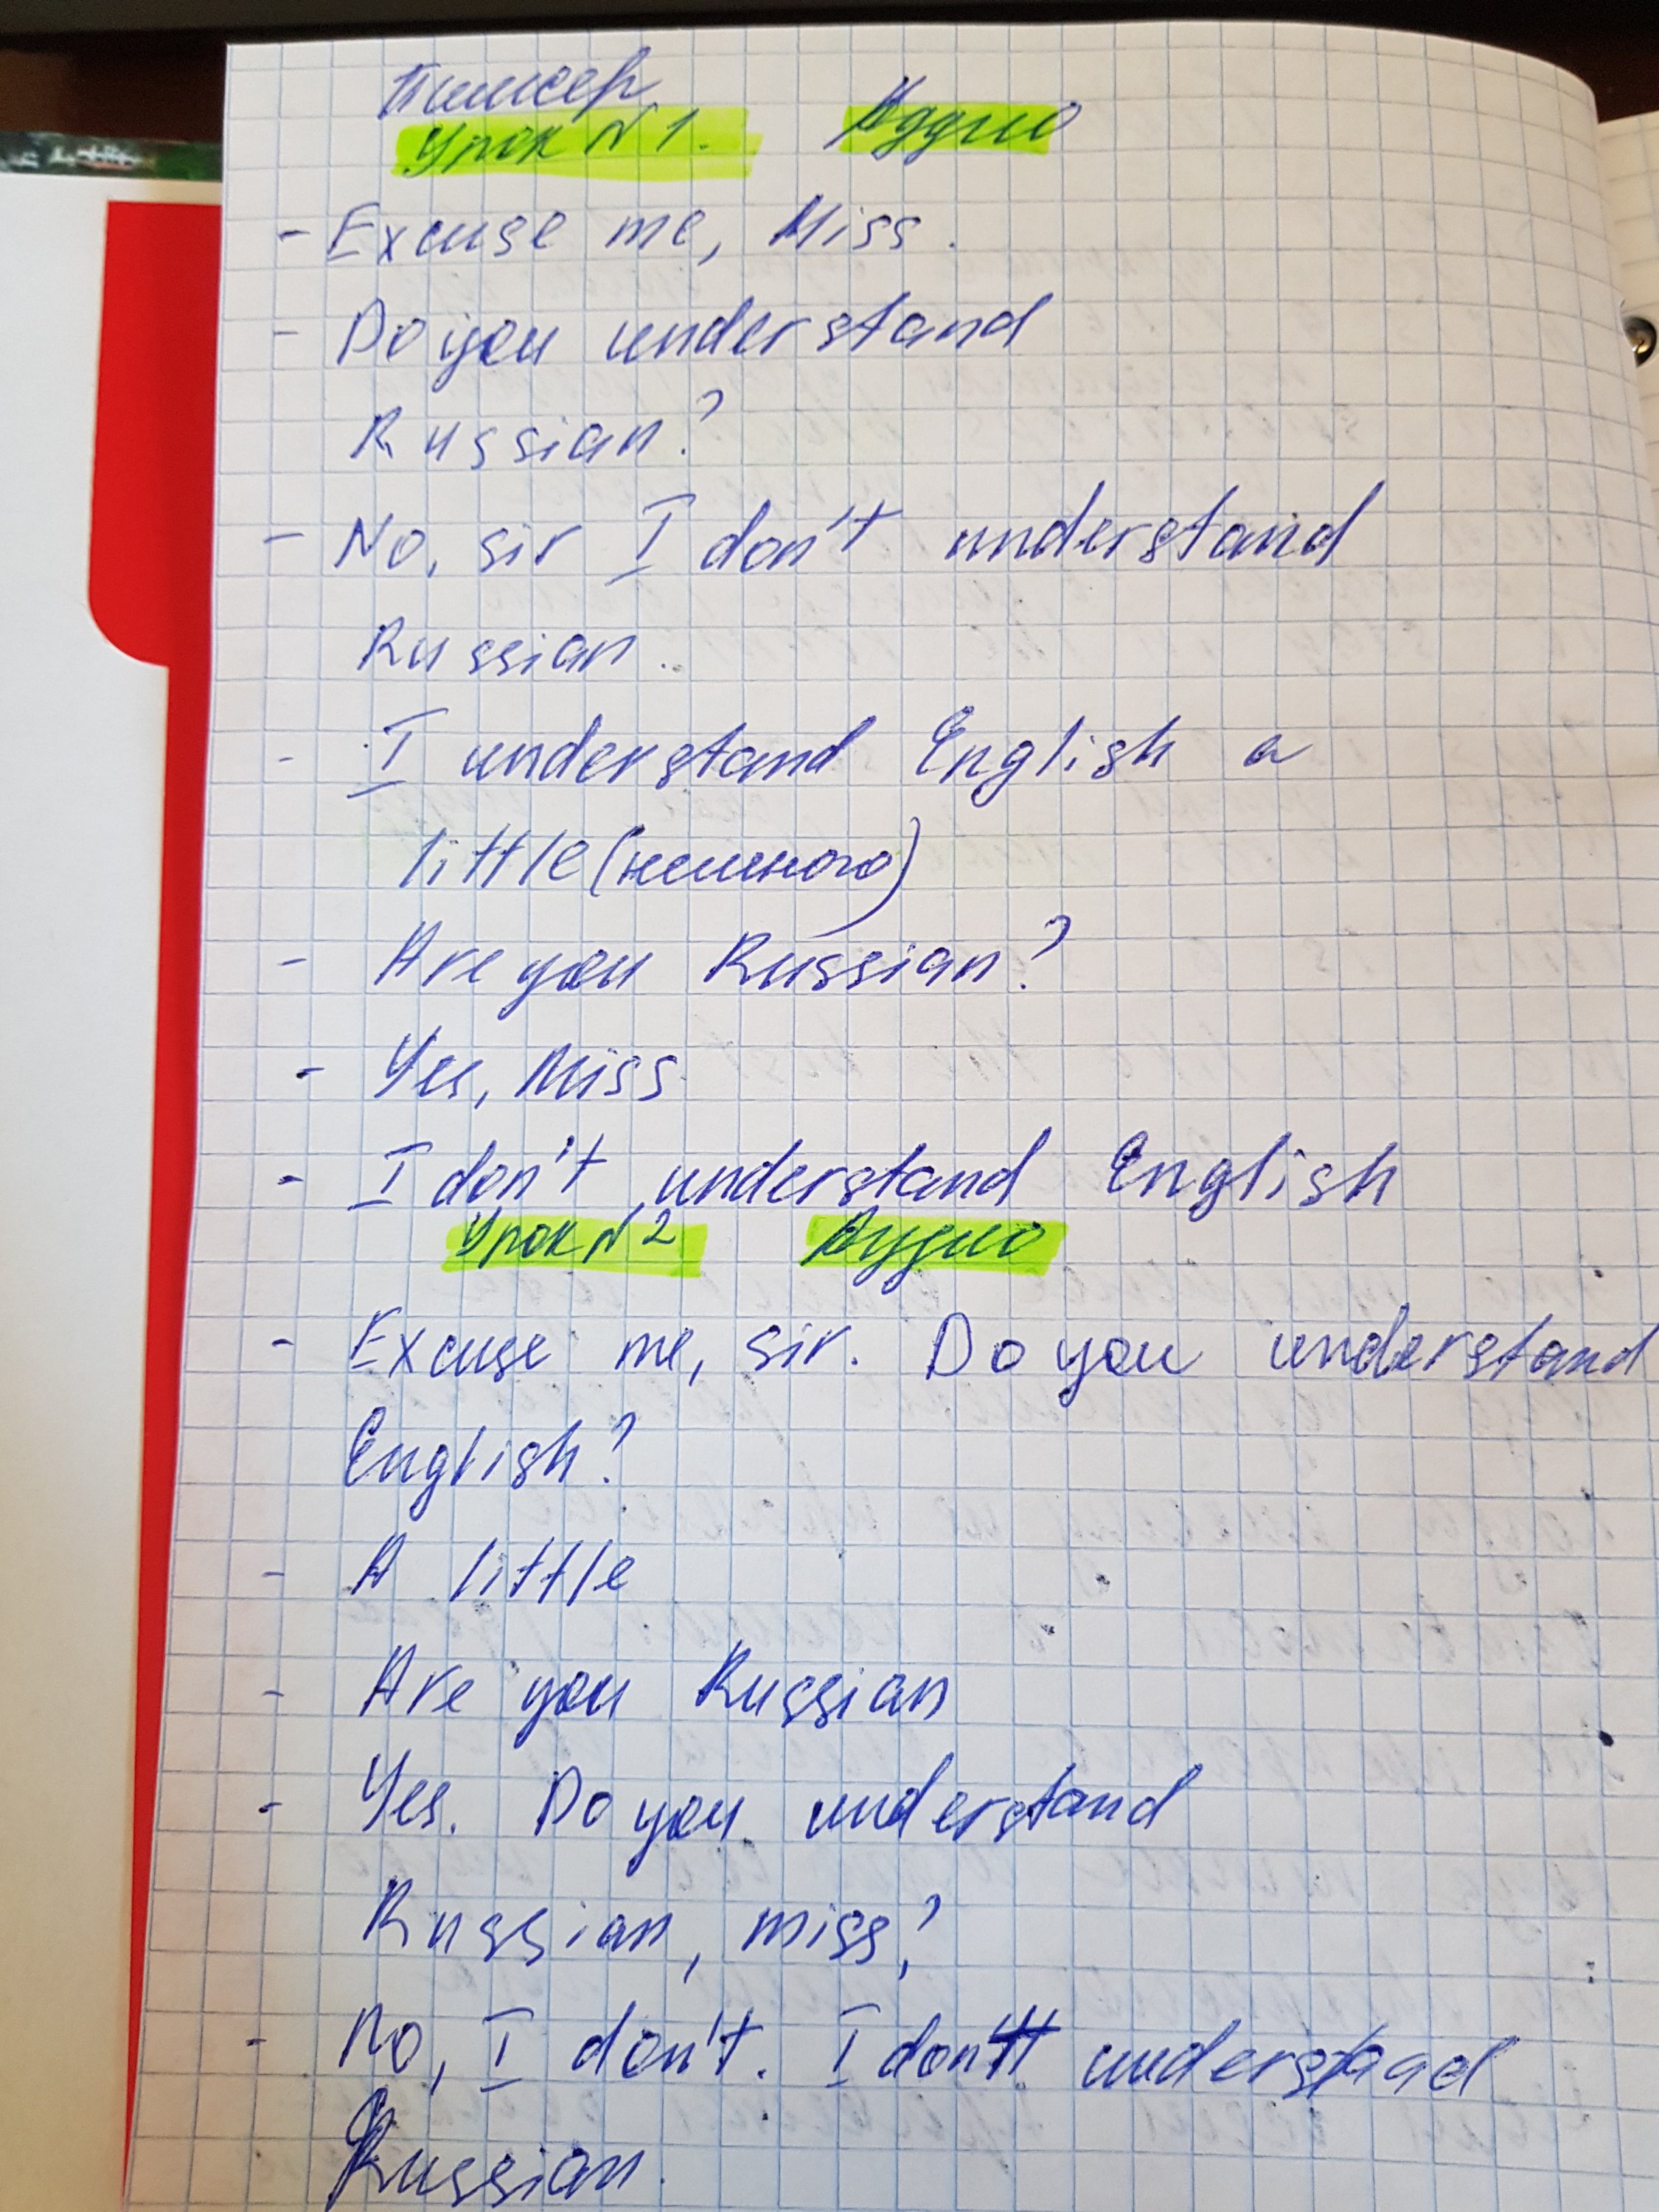 Пимсер
Урок N 1. Аудио
- Excuse me, Miss.
- Do you understand
Russian?
- No, sir I don't understand
Russian.
- I understand English a
little (немного)
- Are you Russian?
- Yes, Miss
- I don't understand English
Урок N 2 Аудио
- Excuse me, sir. Do you understand
English?
- A little
- Are you Russian
- Yes. Do you understand
Russian, miss?
- No, I don't. I don't understand
Russian.